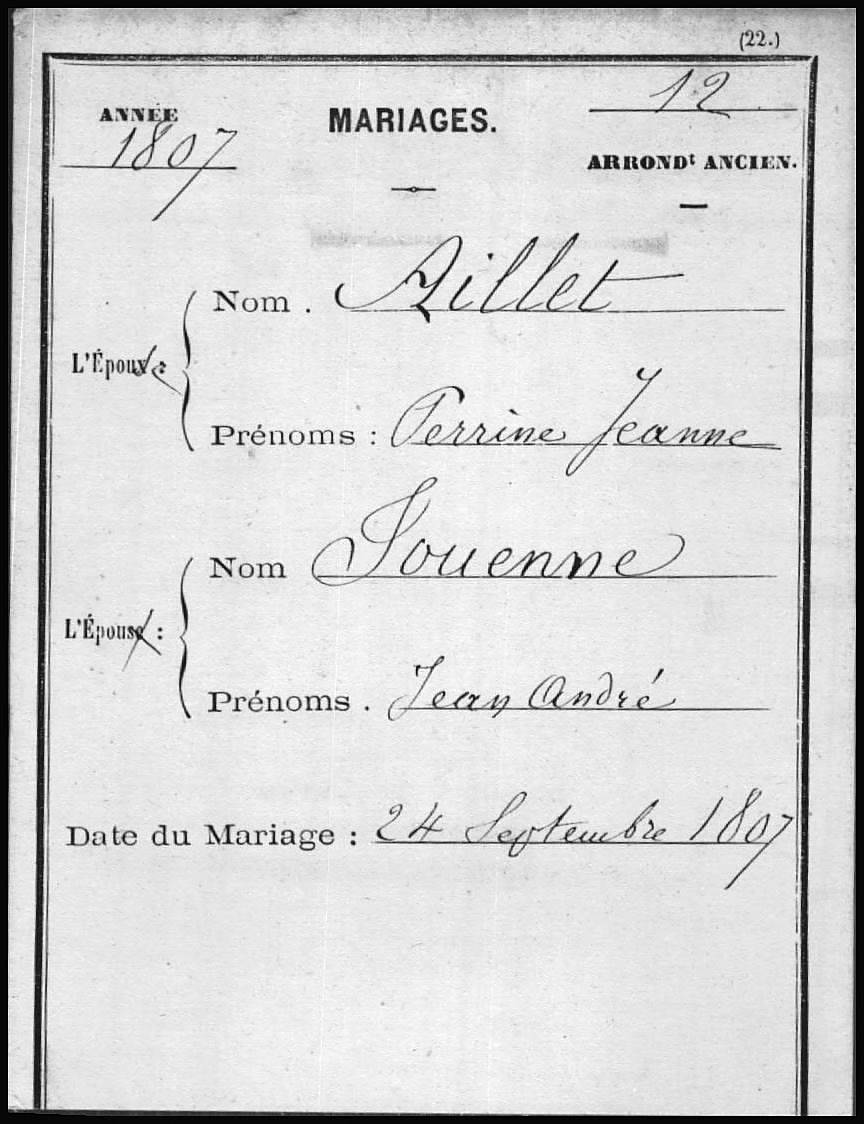 (22.)
ANNÉE
1807
MARIAGES.
12
ARRONDt ANCIEN.
Nom . Aillet
L'Époux :
Prénoms : Perrine Jeanne
Nom Jouenne
L'Épouse :
Prénoms . Jean André
Date du Mariage : 24 Septembre 1807